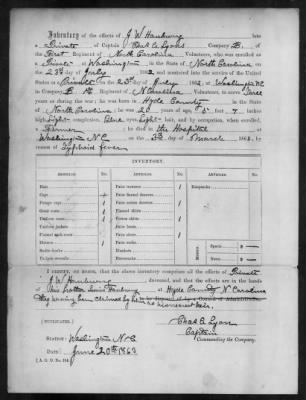 Inventory of the effects of J W Hamburry late
a Private of Captain Chas C Lyons Company B. of
the First Regiment of North Carolina Volunteers, who was enrolled as
Private at Washington in the State of North Carolina on
the 23d day of July 1862, and mustered into the service of the United
States as a Private on the 23d of July 1862, at Washington NC
in Company B. 1st Regiment of N Carolina Volunteers, to serve Three
years or during the war; he was born in Hyde County in the State
of North Carolina; he was 20 years of age, 5 feet 7 inches
high, Light complexion, Blue eyes, Light hair, and by occupation, when enrolled,
a Farmer; he died in the Hospital
at Washington N C on the 3d day of March 1863, by
reason of Typhoid fever
INVENTORY.
Hats
Caps
Forage caps
Great coats
Uniform coats
Uniform jackets
Flannel sack coats
Blouses
Stable frocks
Uniform trowsers
Pairs trowsers
Pairs flannel drawers
Pairs cotton drawers
Flannel shirts
Cotton shirts
Pairs boots
Pairs shoes
Pairs socks
Blankets
Knapsacks
Specie $
Notes $
I CERTIFY, ON HONOR, that the above inventory comprises all the effects of Private
J W Hamburry deceased, and that the effects are in the hands
of at Hyde County N Carolina
they having been claimed by
(DUPLICATES.)
Chas C Lyon
Captain
Commanding the Company.
Station: Washington N C
Date: June 20th 1863